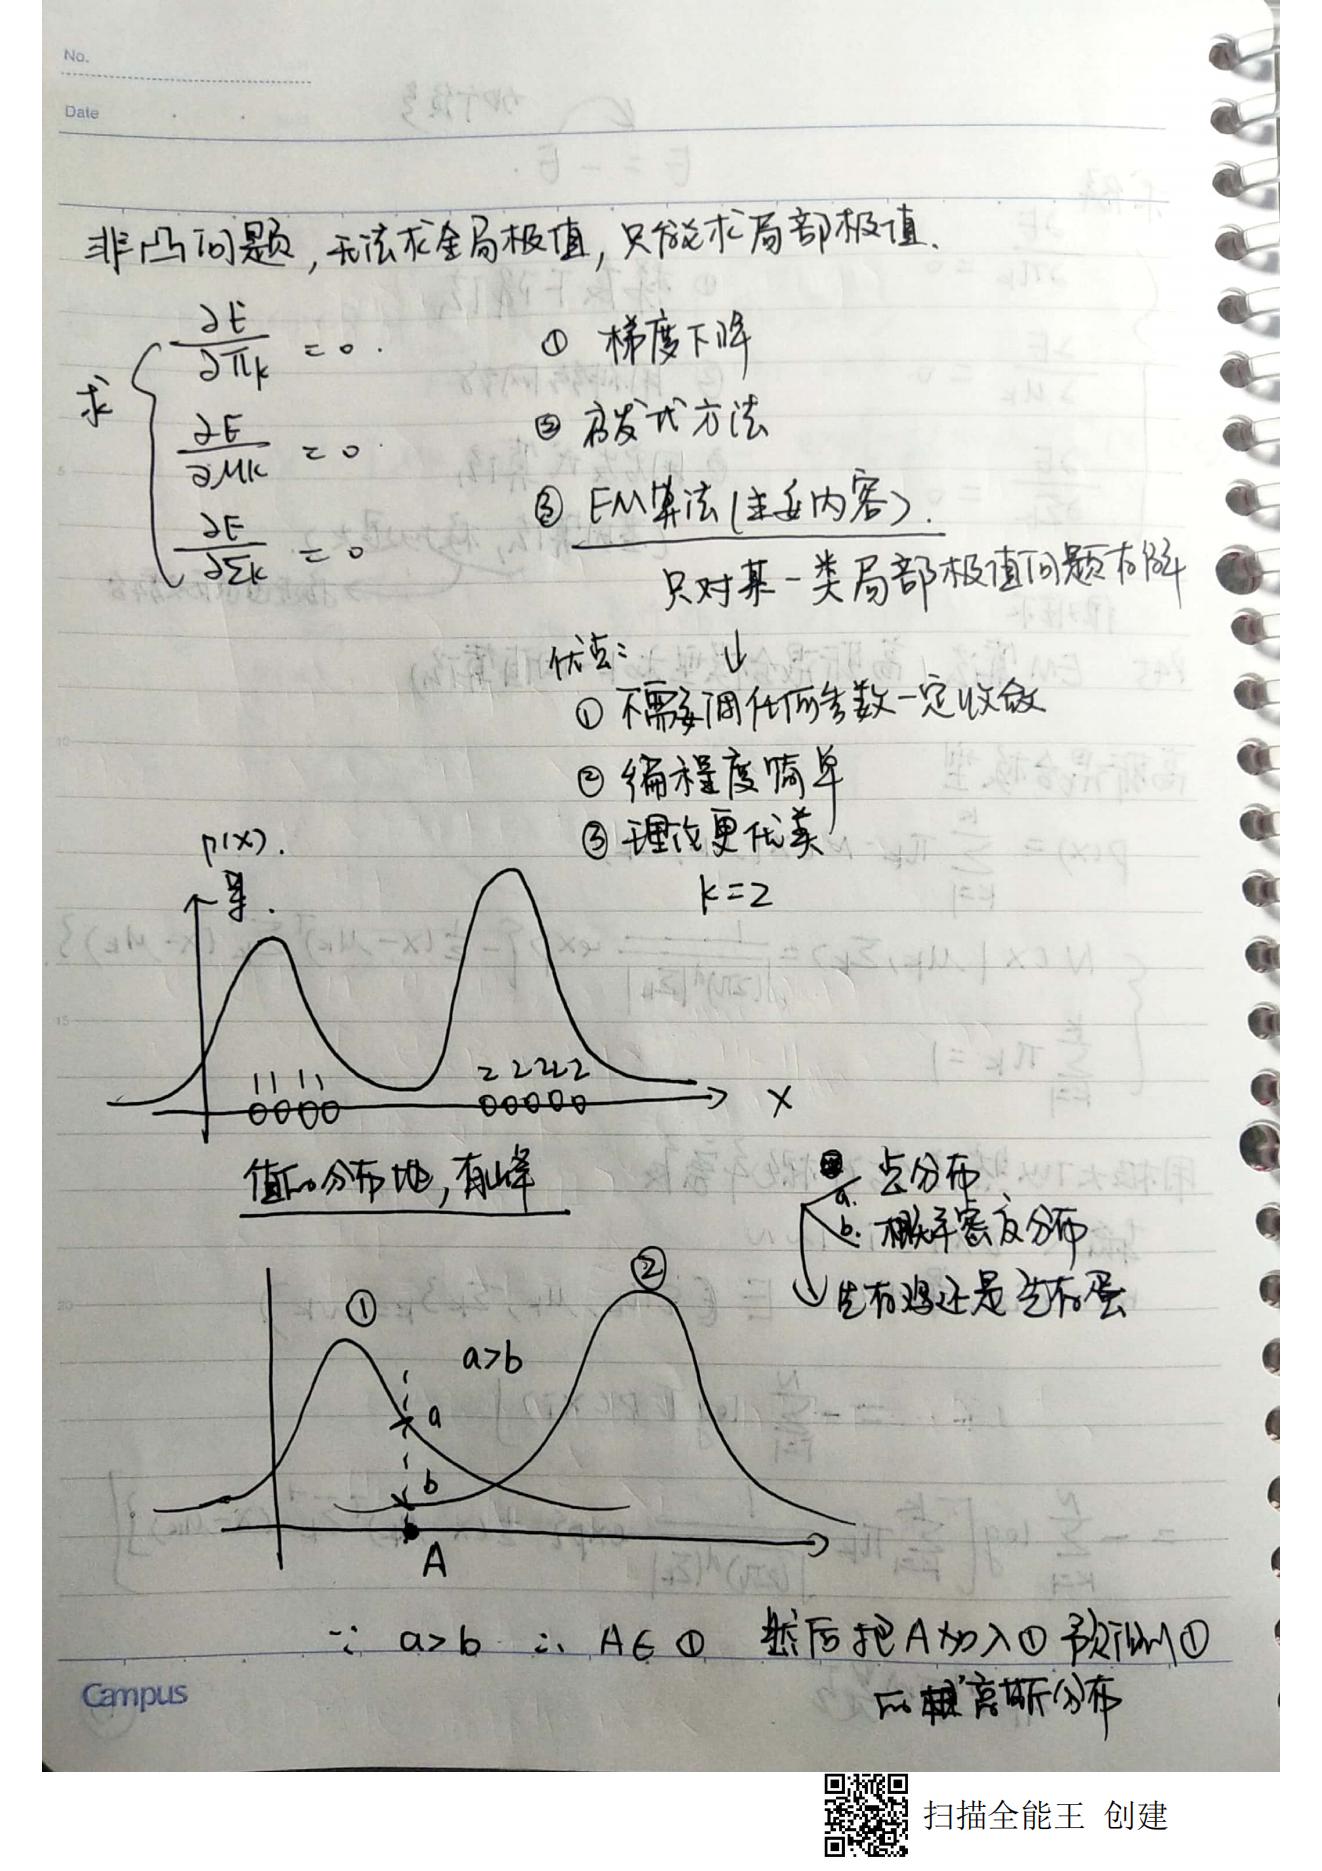 No.
Date
非凸问题,无法求全局极值,只能求局部极值.
求
∂E/∂πk = 0.
∂E/∂μk = 0
∂E/∂Σk = 0
① 梯度下降
② 启发式方法
③ EM算法(主要内容).
只对某一类局部极值问题有解
优点: ↓
① 不需要调任何参数一定收敛
② 编程度简单
③ 理论更优美
k=2
p(x).
1 1 1 1
2 2 2 2 2
X
值的分布地,有山峰
a. 点分布
b. 概率密度分布
先有鸡还是先有蛋
①
②
a>b
a
b
A
∵ a>b ∴ A∈① 然后把A加入① 预测①
的 高斯分布
Campus
扫描全能王 创建